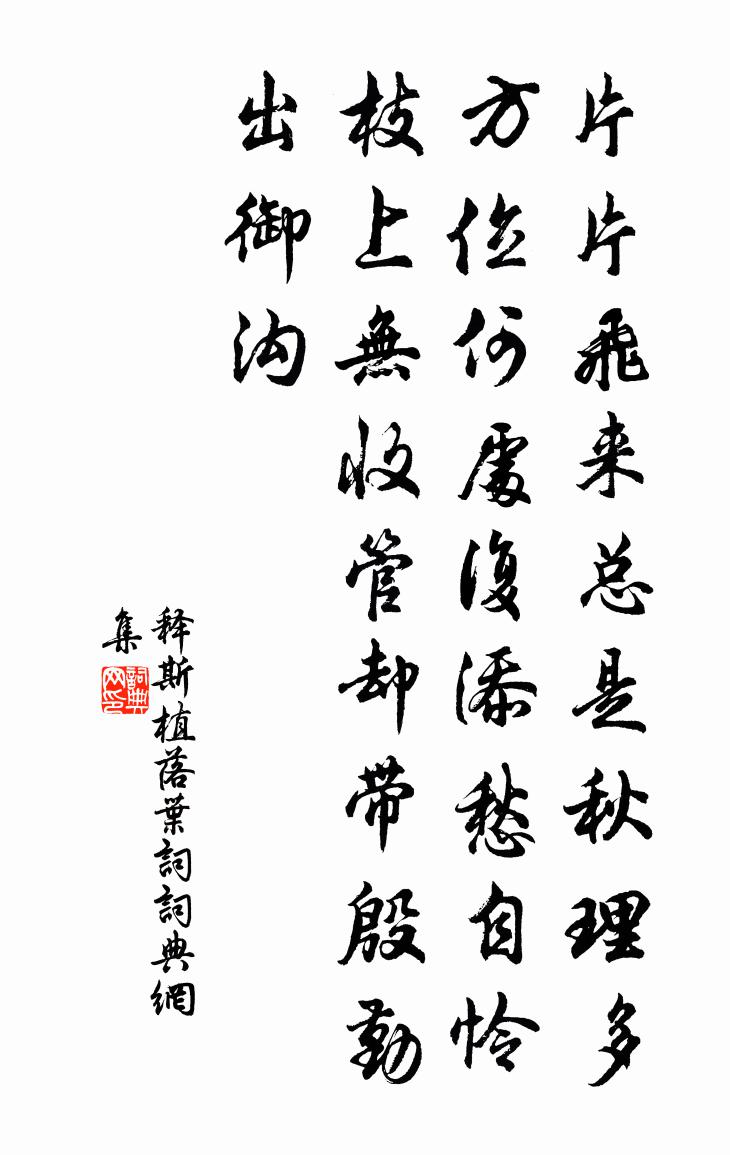 片片飛来总是秋理多
方位何處復添愁自怜
枝上無收管却带殷勤
出御沟
释斯植落葉詞詞典網
集
詞典
网印